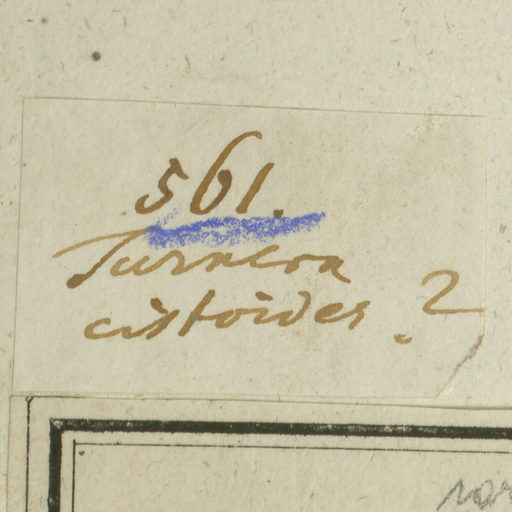 561.
Turnera
cistoides. ?